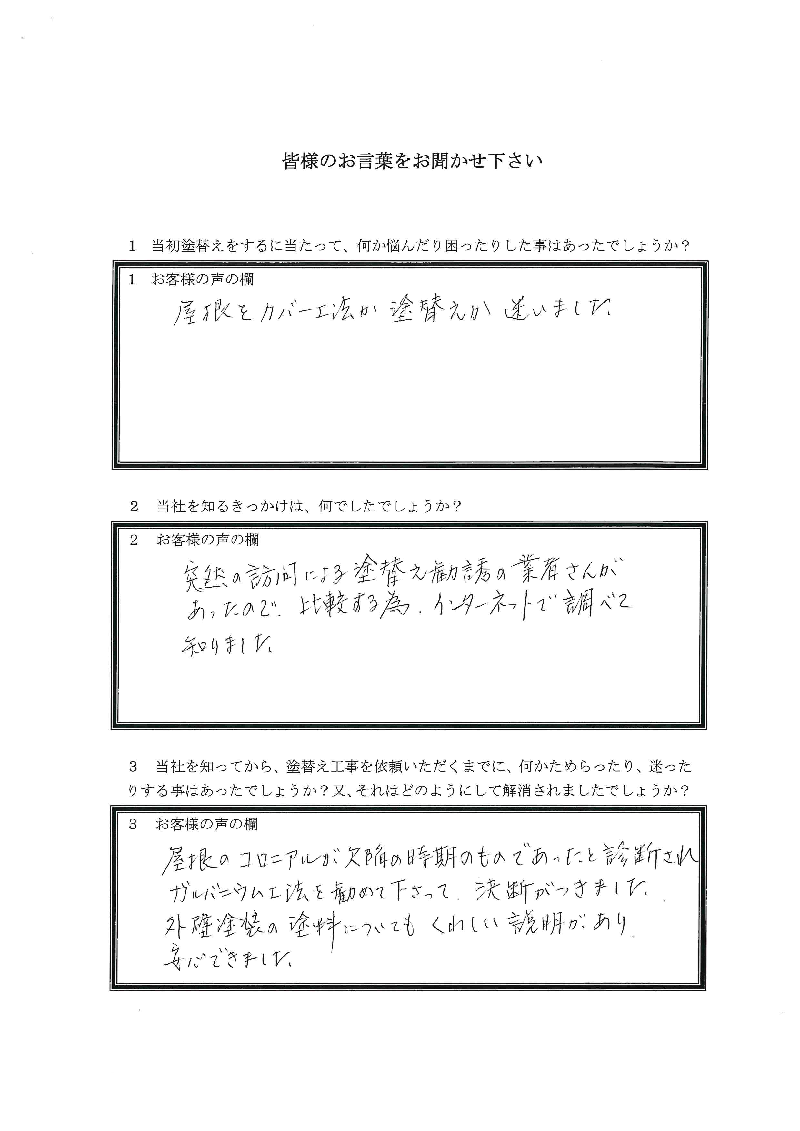 皆様のお言葉をお聞かせ下さい
1 当初塗替えをするに当たって、何か悩んだり困ったりした事はあったでしょうか？
1 お客様の声の欄
屋根をカバー工法か 塗替えか 迷いました。
2 当社を知るきっかけは、何でしたでしょうか？
2 お客様の声の欄
突然の訪問による塗替え勧誘の業者さんが
あったので、比較する為、インターネットで調べて
知りました。
3 当社を知ってから、塗替え工事を依頼いただくまでに、何かためらったり、迷った
りする事はあったでしょうか？又、それはどのようにして解消されましたでしょうか？
3 お客様の声の欄
屋根のコロニアルが欠陥の時期のものであったと診断され
ガルバニウム工法を勧めて下さって、決断がつきました。
外壁塗装の塗料についても くわしい説明があり
安心できました。